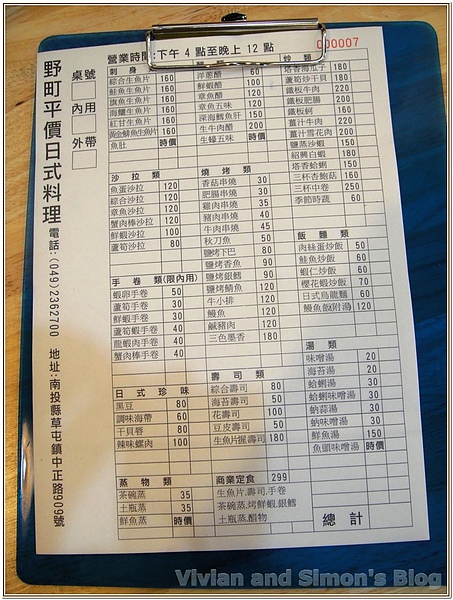 營業時間:下午 4 點至晚上 12 點
000007
野町平價日式料理
電話:(049)2362700 地址:南投縣草屯鎮中正路909號
桌號
內用
外帶
刺身
綜合生魚片 160
鮭魚生魚片 160
旗魚生魚片 160
海鱺生魚片 160
紅甘生魚片 160
黃金鯡魚生魚片 160
魚肚 時價
沙拉類
魚蛋沙拉 120
綜合沙拉 120
章魚沙拉 120
蟹肉棒沙拉 120
鮮蝦沙拉 100
蘆筍沙拉 80
手卷類(限內用)
蝦卵手卷 50
蘆筍手卷 30
鮮蝦手卷 30
蘆筍蝦手卷 40
龍蝦肉手卷 40
蟹肉棒手卷 40
日式珍味
黑豆 80
調味海帶 60
干貝唇 80
辣味螺肉 100
蒸物類
茶碗蒸 35
土瓶蒸 35
鮮魚蒸 時價
洋蔥醋 60
鮮蝦醋 100
章魚醋 120
章魚五味 120
深海鱈魚肝 150
生牛肉醋 200
生蠔五味 200
燒烤類
香菇串燒 30
肥腸串燒 30
雞肉串燒 35
豬肉串燒 40
牛肉串燒 45
秋刀魚 50
鹽烤下巴 80
鹽烤香魚 90
鹽烤銀鱈 90
鹽烤鯖魚 120
牛小排 120
鰻魚 120
鹹豬肉 120
三色墨香 180
壽司類
綜合壽司 80
海苔壽司 50
花壽司 100
豆皮壽司 50
生魚片握壽司 180
商業定食 299
生魚片.壽司.手卷
茶碗蒸.烤鮮蝦.銀鱈
土瓶蒸.醋物
炒類
塔香海瓜子 180
蘆筍炒干貝 180
鐵板牛肉 220
鐵板肥腸 200
鐵板蚵 160
薑汁牛肉 220
薑汁雪花肉 200
鹽蒸沙蝦 150
紹興白蝦 180
塔香蛤蜊 150
三杯杏鮑菇 160
三杯中卷 250
季節時蔬 60
飯麵類
肉絲蛋炒飯 50
鮭魚炒飯 60
蝦仁炒飯 60
櫻花蝦炒飯 70
日式烏龍麵 60
鰻魚飯附湯 120
湯類
味噌湯 20
海苔湯 20
蛤蜊湯 30
蛤蜊味噌湯 30
蚋蒜湯 30
蚋味噌湯 30
鮮魚湯 150
魚頭味噌湯 時價
總計
Vivian and Simon's Blog